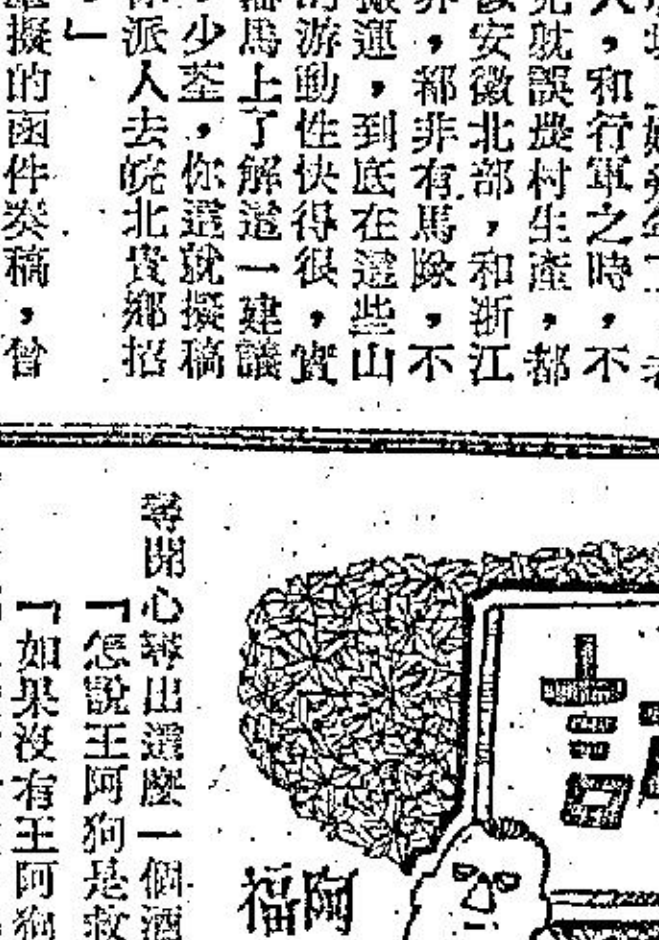 ，和行軍之時，不
躭誤農村生產，都
安徽北部，和浙江
，都非有馬隊，不
運，到底在這些山
的游動性快得很，實
馬上了解這一建議
少荃，你這就擬稿
派人去皖北貴鄉招
」
擬的函件奏稿，曾
阿福
尋開心尋出這麼一個酒
「怎說王阿狗是救
「如果沒有王阿狗